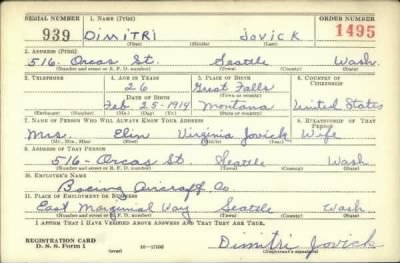 SERIAL NUMBER 1. NAME (Print) ORDER NUMBER
939 DIMITRI JOVICK 1495
(First) (Middle) (Last)
2. ADDRESS (Print)
516- Orcas St. Seattle Wash.
(Number and street or R. F. D. number) (Town) (County) (State)
3. TELEPHONE 4. AGE IN YEARS 5. PLACE OF BIRTH 6. COUNTRY OF CITIZENSHIP
26 Great Falls
DATE OF BIRTH (Town or county)
Feb 25-1914 Montana United States
(Exchange) (Number) (Mo.) (Day) (Yr.) (State or country)
7. NAME OF PERSON WHO WILL ALWAYS KNOW YOUR ADDRESS 8. RELATIONSHIP OF THAT PERSON
Mrs. Elin Virginia Jovick Wife
(Mr., Mrs., Miss) (First) (Middle) (Last)
9. ADDRESS OF THAT PERSON
516- Orcas St. Seattle Wash
(Number and street or R. F. D. number) (Town) (County) (State)
10. EMPLOYER'S NAME
Boeing Aircraft Co
11. PLACE OF EMPLOYMENT OR BUSINESS
East Marginal Way Seattle Wash
(Number and street or R. F. D. number) (Town) (County) (State)
I AFFIRM THAT I HAVE VERIFIED ABOVE ANSWERS AND THAT THEY ARE TRUE.
REGISTRATION CARD
D. S. S. Form 1 (over) 16-17105 Dimitri Jovick